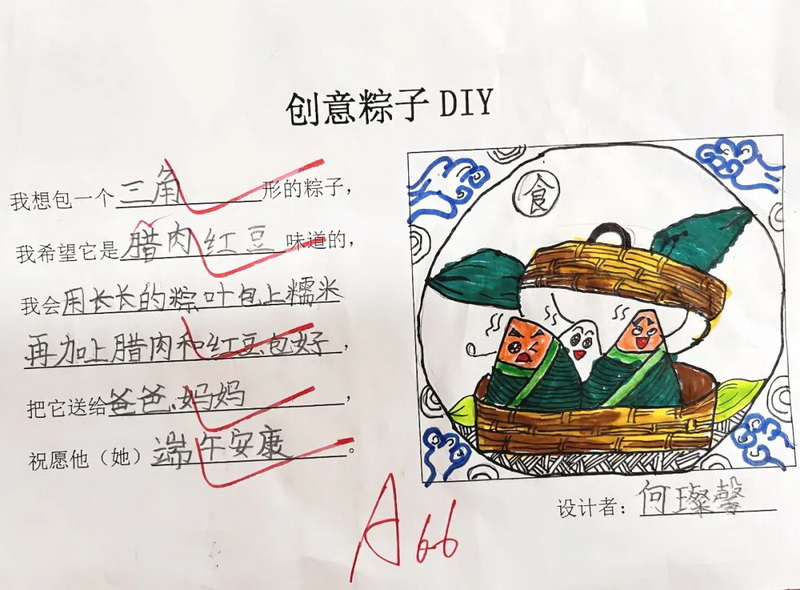 创意粽子 DIY
我想包一个三角形的粽子，
我希望它是腊肉红豆味道的，
我会用长长的粽叶包上糯米
再加上腊肉和红豆包好，
把它送给爸爸、妈妈，
祝愿他（她）端午安康。
食
设计者：何璨馨
A66